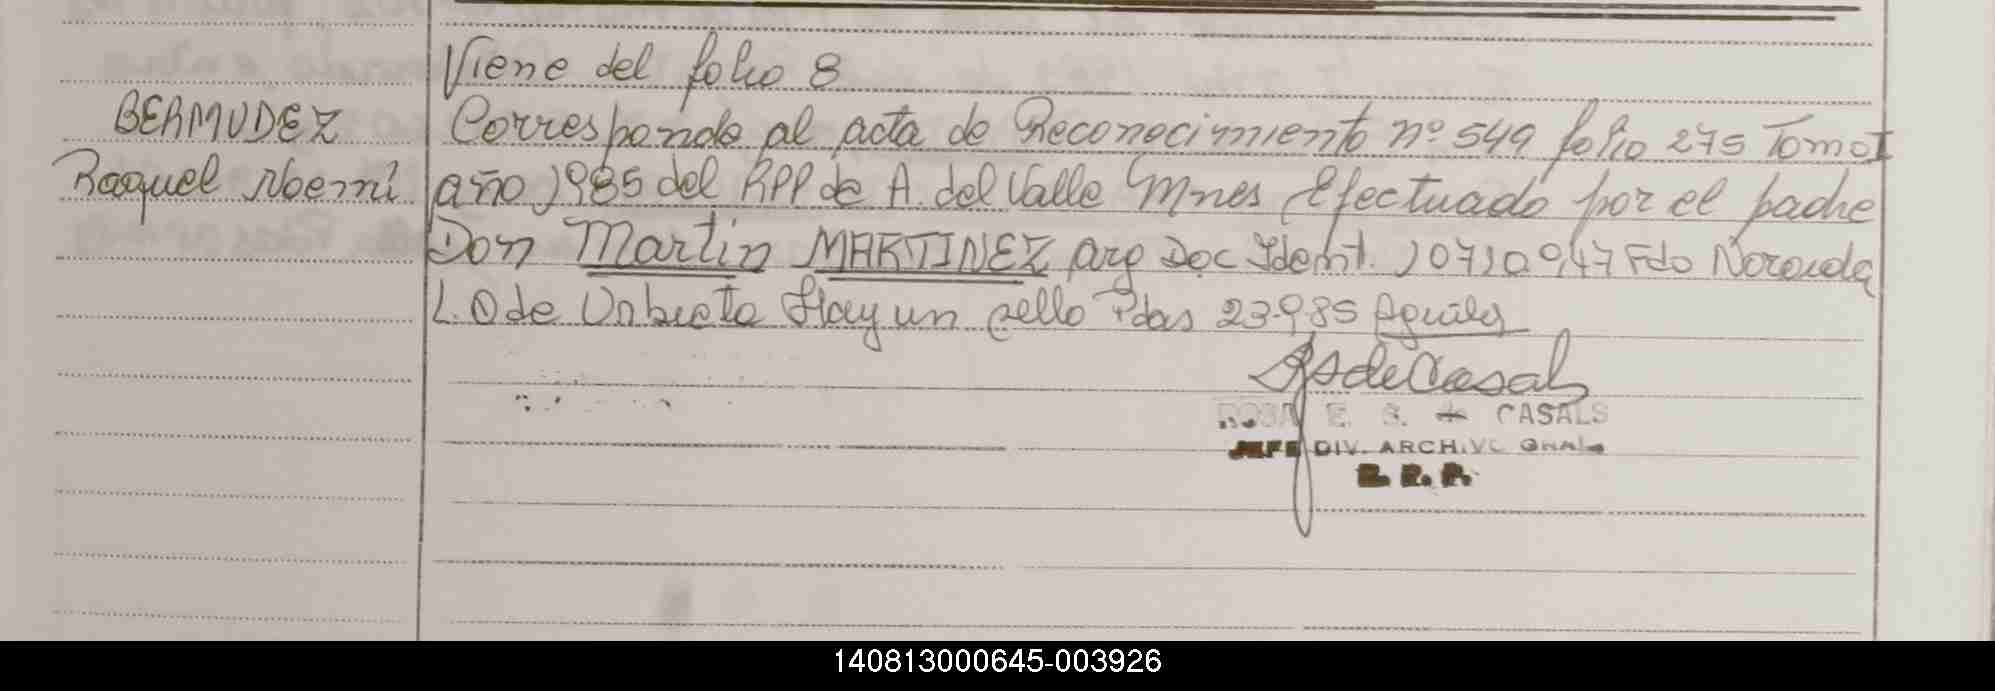 Viene del folio 8
BERMUDEZ
Corresponde al acta de Reconocimiento nº 549 folio 275 Tomo I
Raquel Noemí
año 1985 del RPP de A. del Valle Mnes Efectuado por el padre
Don Martin MARTINEZ arg Doc Ident. Fdo
L. O de Hay un sello 23-985
ROSA E. S. de CASALS
JEFE DIV. ARCHIVO GRAL
140813000645-003926